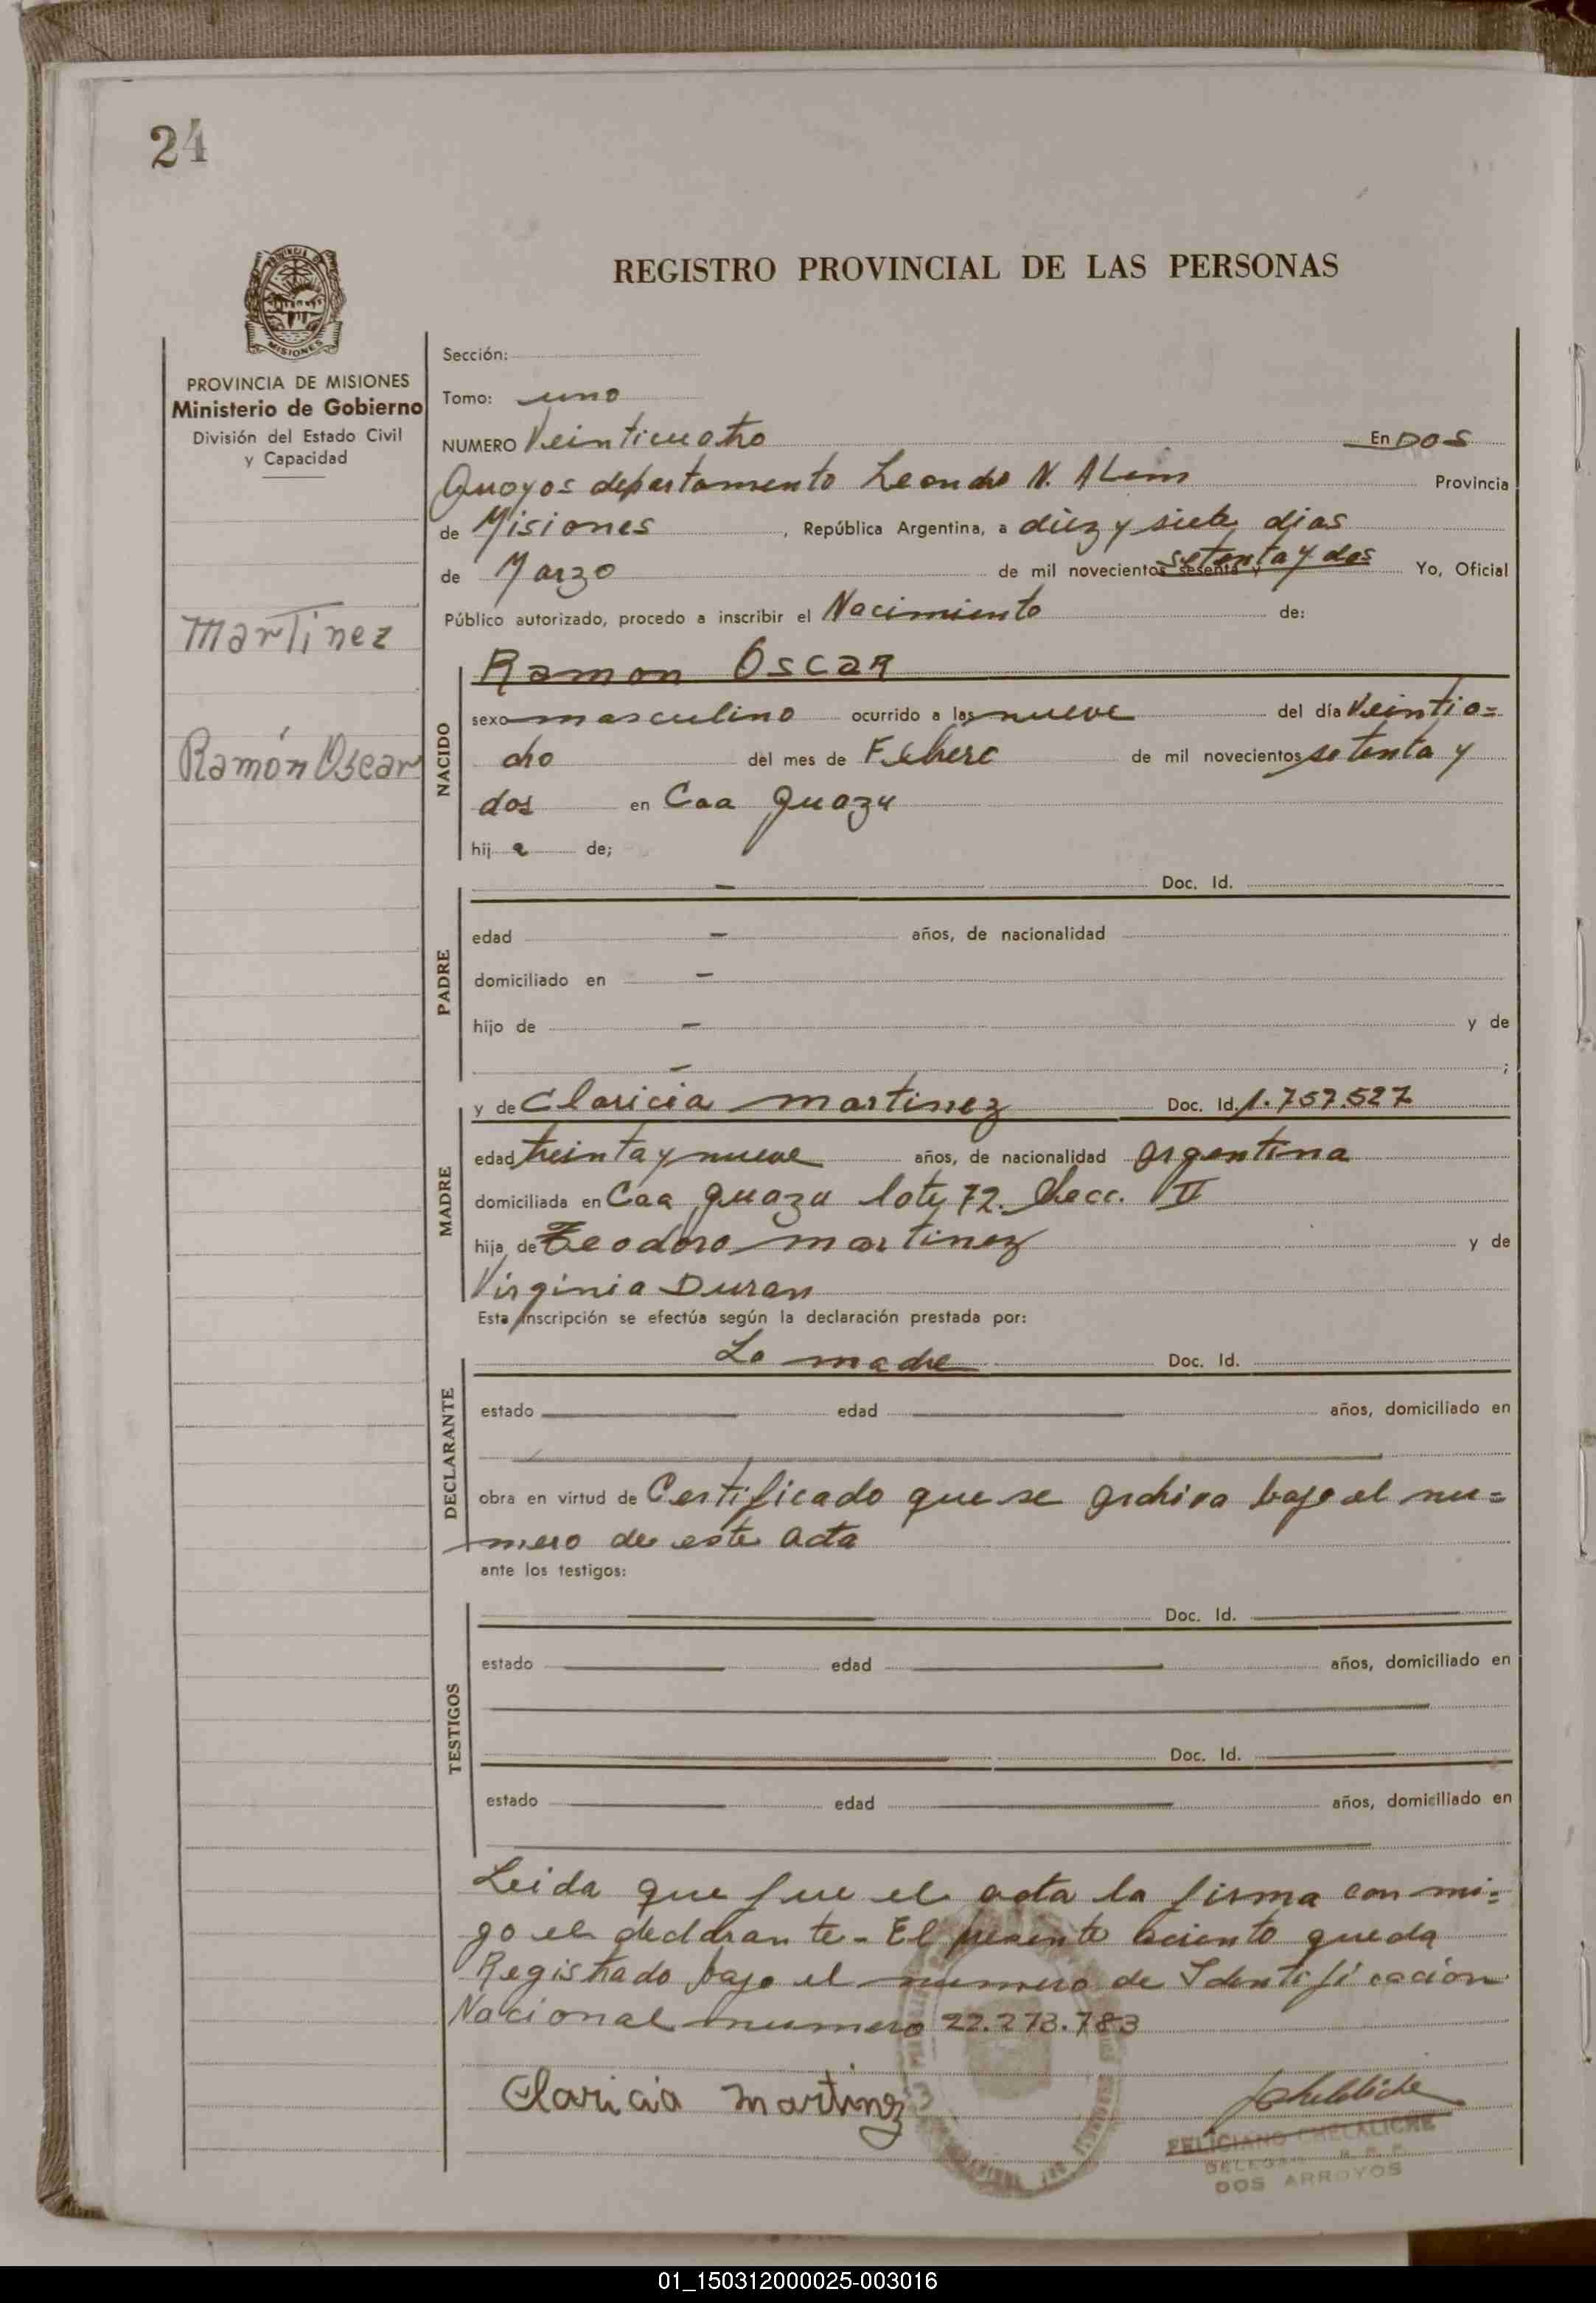 24
REGISTRO PROVINCIAL DE LAS PERSONAS
MISIONES
PROVINCIA DE MISIONES
Ministerio de Gobierno
División del Estado Civil
y Capacidad
Martinez
Ramón Oscar
Sección:
Tomo: uno
NUMERO Veinticuatro En DOS
Arroyos departamento Leandro N. ALem Provincia
de Misiones , República Argentina, a diez y siete dias
de Marzo de mil novecientos sesenta y setenta y dos Yo, Oficial
Público autorizado, procedo a inscribir el Nacimiento de:
NACIDO
Ramon Oscar
sexo masculino ocurrido a las nueve del día Veintio=
cho del mes de Febrero de mil novecientos setenta y
dos en Caa Guazu
hij o de;
PADRE
- Doc. Id.
edad - años, de nacionalidad
domiciliado en -
hijo de - y de
- ;
MADRE
y de Claricia Martinez Doc. Id. 1.757.527
edad treinta y nueve años, de nacionalidad argentina
domiciliada en Caa Guazu lote 72. Secc. II
hija de Teodoro Martinez y de
Virginia Duran
Esta inscripción se efectúa según la declaración prestada por:
DECLARANTE
La madre Doc. Id.
estado edad años, domiciliado en
obra en virtud de Certificado que se archiva bajo el nu=
mero de este acta
ante los testigos:
TESTIGOS
Doc. Id.
estado edad años, domiciliado en
Doc. Id.
estado edad años, domiciliado en
Leida que fue el acta la firma con mi=
go el declarante - El presente aciento queda
Registrado bajo el numero de Identificación
Nacional numero 22.273.783
Claricia Martinez
FELICIANO CHELALICHE
DOS ARROYOS
01_150312000025-003016